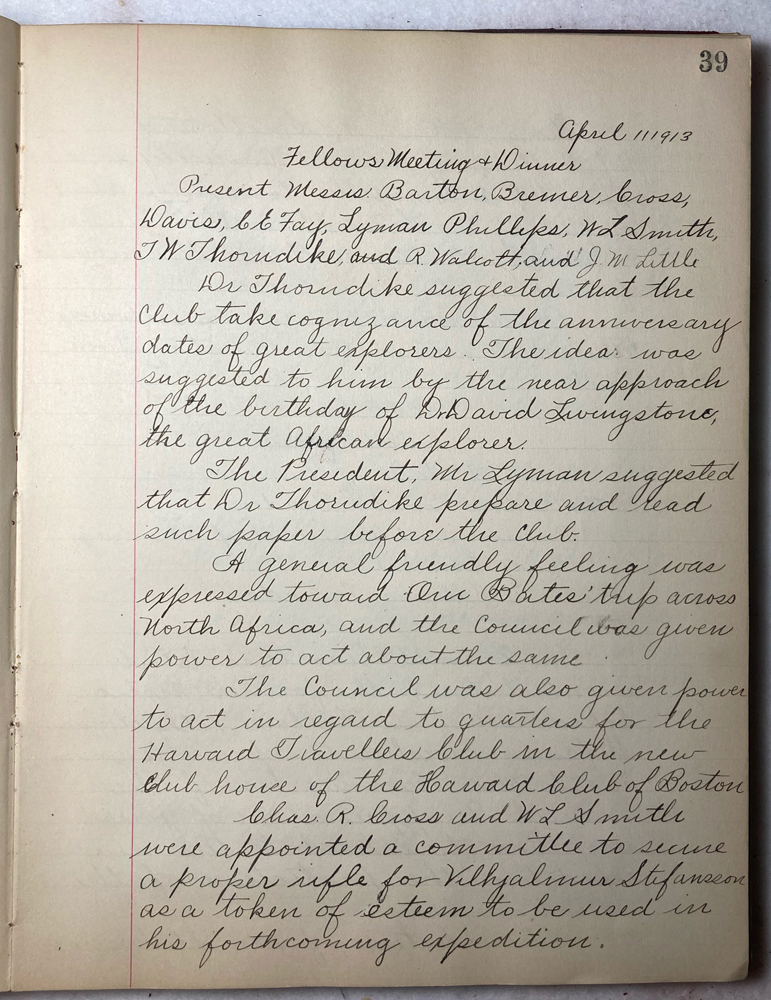 39
April 11 1913
Fellows Meeting & Dinner
Present Messrs. Barton, Bremer, Cross,
Davis, C E Fay, Lyman Phillips, W L Smith,
T W Thorndike, and R. Walcott, and J. M Little
Dr Thorndike suggested that the
Club take cognizance of the anniversary
dates of great explorers. The idea was
suggested to him by the near approach
of the birthday of Dr David Livingstone,
the great African explorer.
The President, Mr Lyman suggested
that Dr Thorndike prepare and read
such paper before the Club.
A general friendly feeling was
expressed toward Oric Bates' trip across
North Africa, and the Council was given
power to act about the same.
The Council was also given power
to act in regard to quarters for the
Harvard Travellers Club in the new
Club house of the Harvard Club of Boston
Chas. R. Cross and W L Smith
were appointed a committee to secure
a proper rifle for Vilhjalmur Stefansson
as a token of esteem to be used in
his forthcoming expedition.